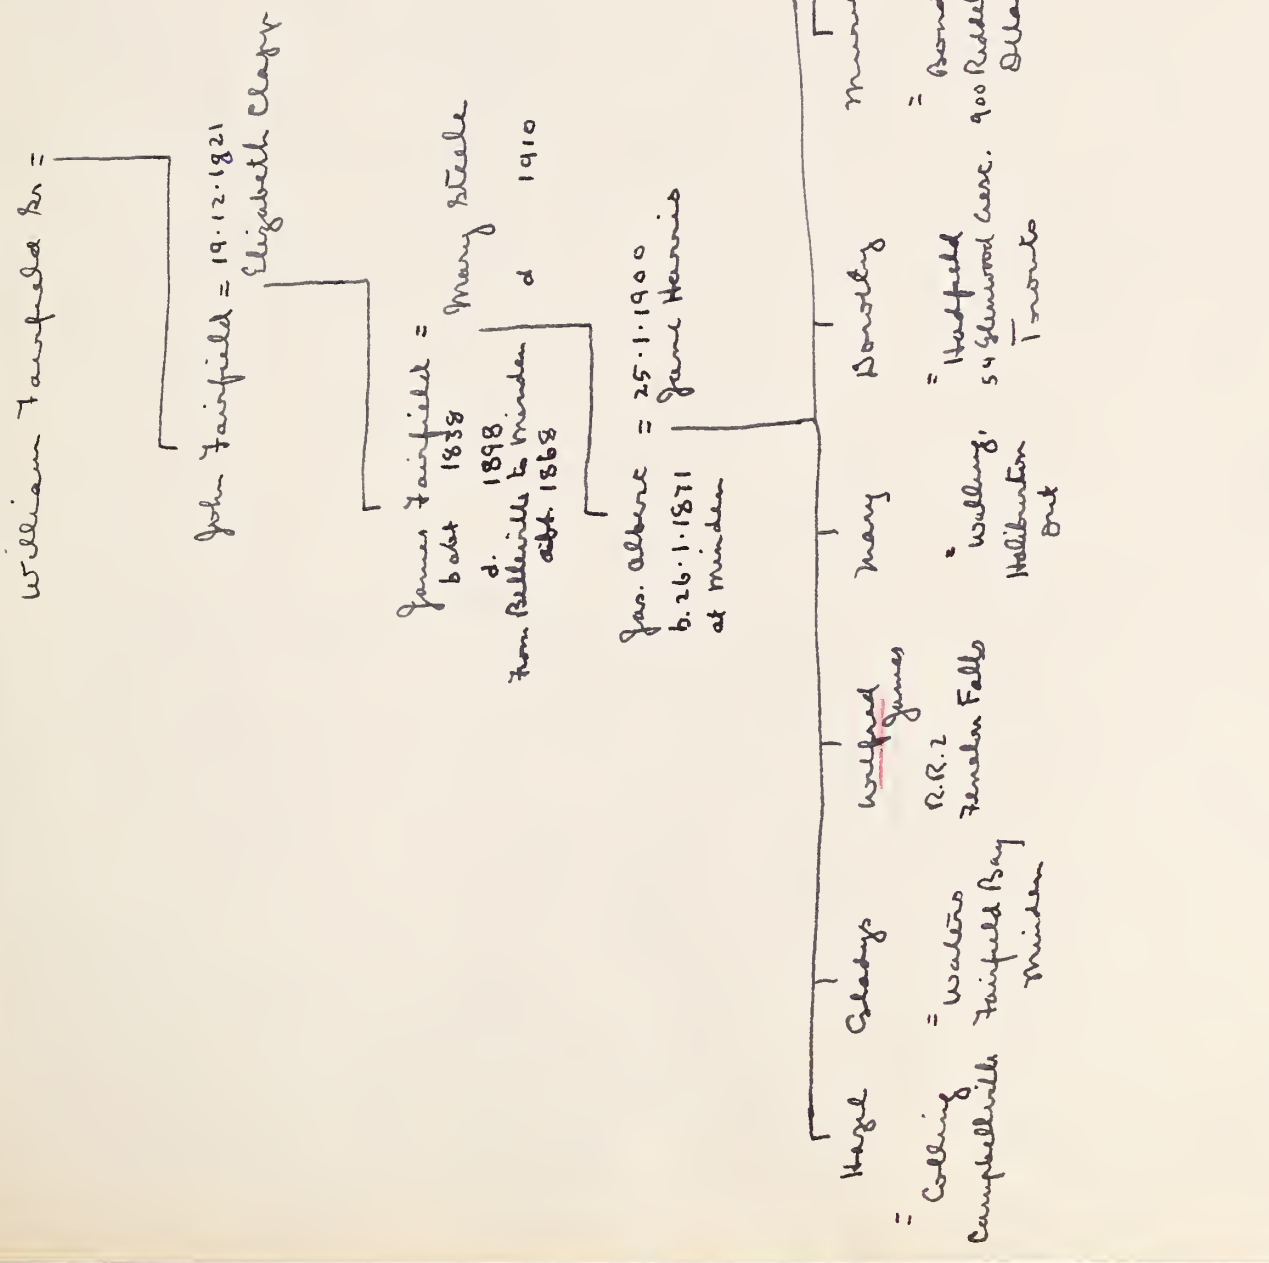 William Fairfield Sr =
John Fairfield = 19.12.1821
Elizabeth Clapp
James Fairfield = Mary Steele
b abt 1838
d. 1898 d 1910
From Belleville to Minden
abt. 1868
Jas. Albert = 25.1.1900
b. 26.1.1871 Jane Harris
at Minden
Hazel
= Colling
Campbellville
Gladys
= Waters
Fairfield Bay
Minden
Wilfred
James
R.R.2
Fenelon Falls
Mary
= Walling,
Haliburton
Ont
Dorothy
= Hadfield
54 Glenwood Cresc.
Toronto
=
900